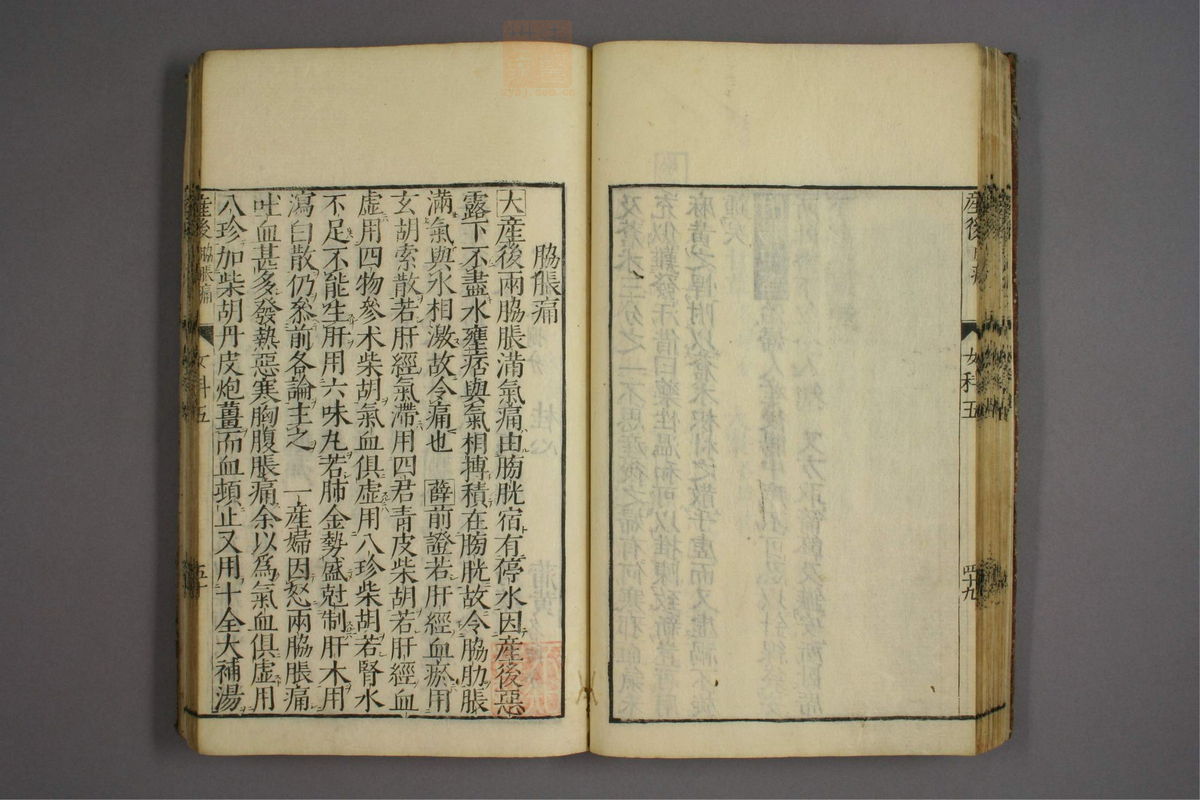 産後
女科五
四九
脇脹痛
大産後兩脇脹滿氣痛由膀胱宿有停水因産後惡
露下不盡水壅痞與氣相搏積在膀胱故令脇肋脹
滿氣與水相激故令痛也 薛前證若肝經血瘀用
玄胡索散若肝經氣滯用四君青皮柴胡若肝經血
虛用四物參朮柴胡氣血俱虛用八珍柴胡若腎水
不足不能生肝用六味丸若肺金勢盛尅制肝木用
瀉白散仍參前各論主之 一産婦因怒兩脇脹痛
吐血甚多發熱惡寒胸腹脹痛余以爲氣血俱虛用
八珍加柴胡丹皮炮薑而血頓止又用十全大補湯
産後 脇脹痛
女科五
五十